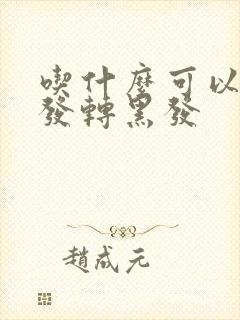 喫什麼可以
發轉黑發
趙成元